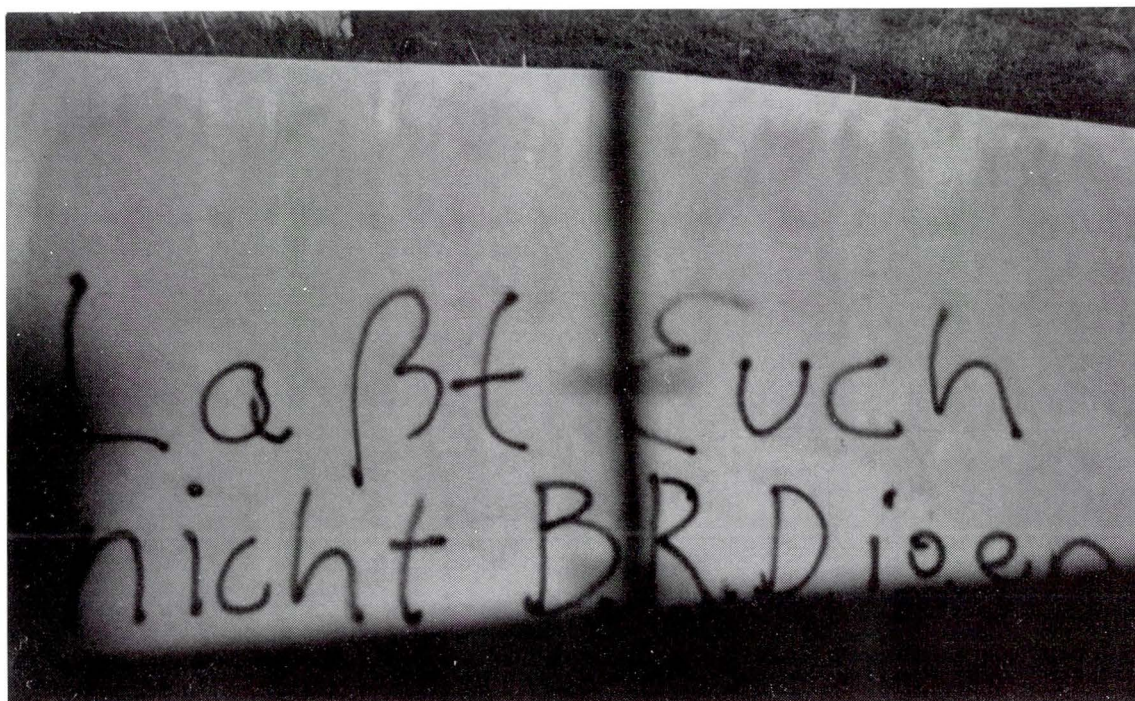 Laßt Euch
nicht B.R.Digen